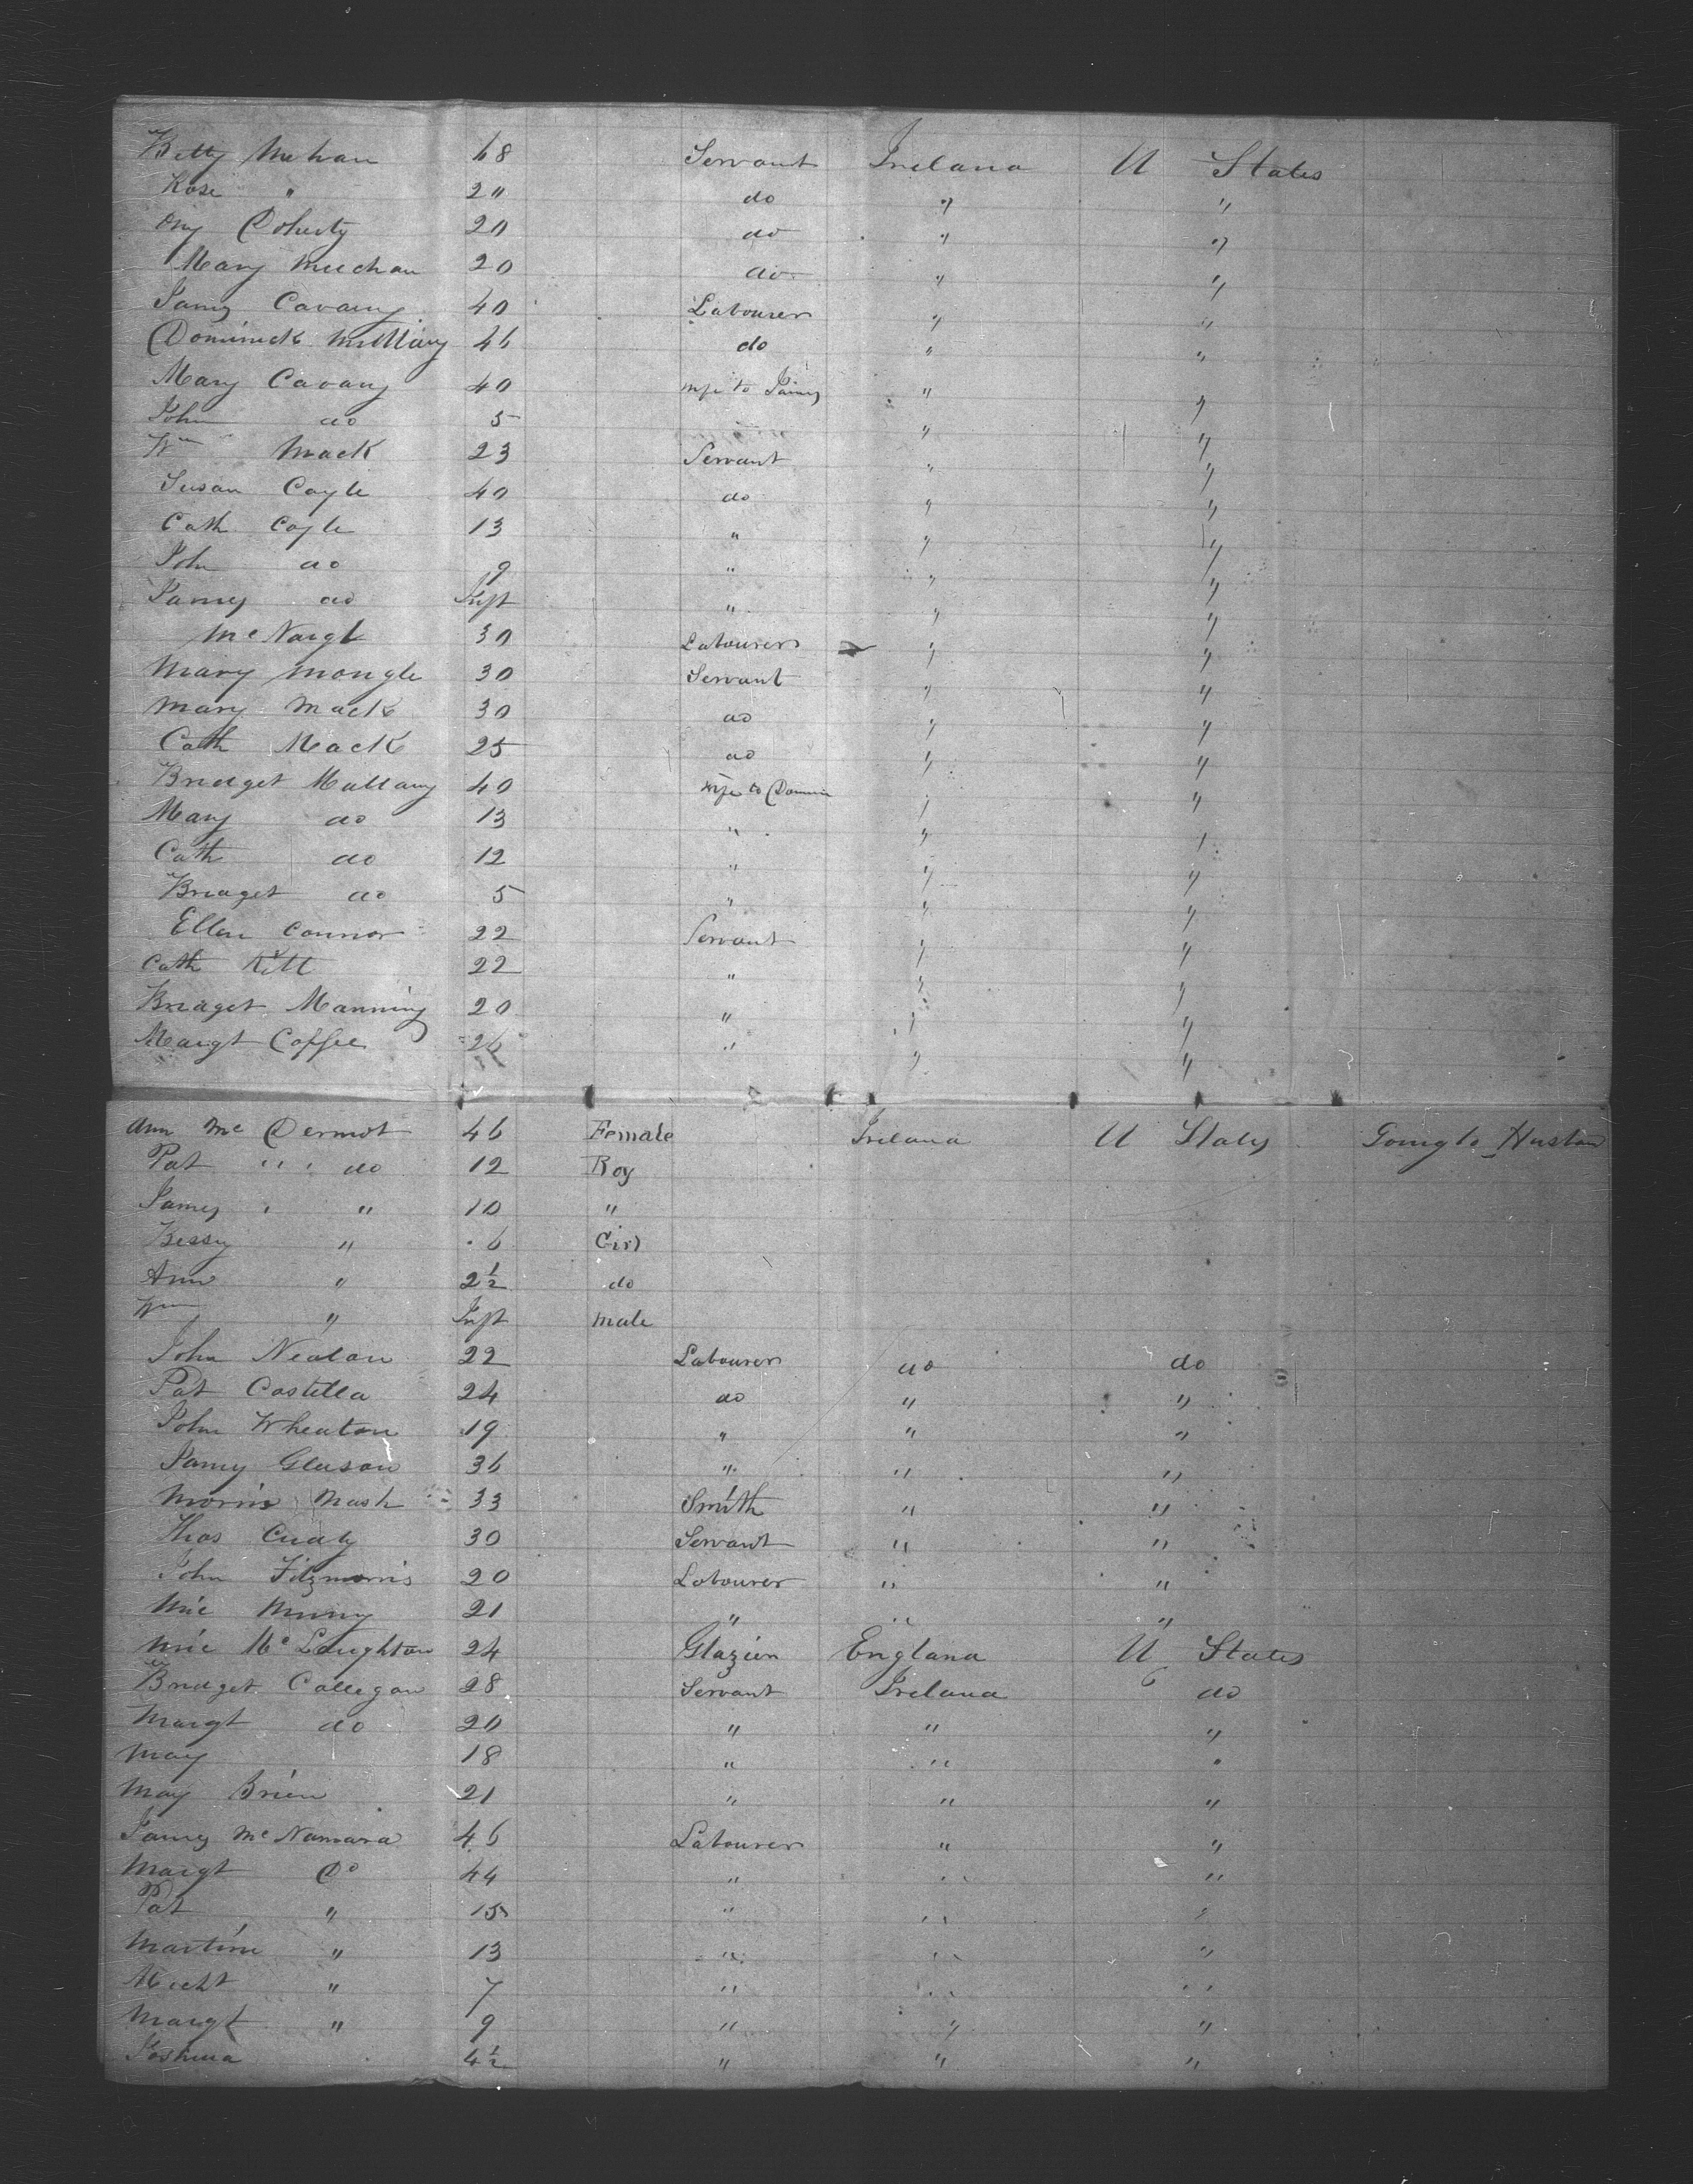 Betty Mehan 68 Servant Ireland U States
Rose " 20 do " "
Ony Doherty 20 do " "
Mary Meehan 20 do " "
James Cavany 40 Labourer " "
Dominick 46 do " "
Mary Cavany 40 wife to James " "
John do 5 " "
Wm Mack 23 Servant " "
Susan Coyle 40 do " "
Cath Coyle 13 " " "
John do 9 " " "
James do Inft " " "
McNaigt 30 Labourer " "
Mary Mongle 30 Servant " "
Mary Mack 30 do " "
Cath Mack 25 do " "
Bridget Mullany 40 wife to Domin " "
Mary do 13 " " "
Cath do 12 " " "
Bridget do 5 " " "
Ellen Connor 22 Servant " "
Cath Kitt 22 " " "
Bridget Manning 20 " " "
Margt Coffee 26 " " "
Ann Mc Dermot 46 Female Ireland U States Going to Huston
Pat " do 12 Boy
James " " 10 "
Bessy " 6 Girl
Ann " 2½ do
Wm " Inft male
John Nealon 22 Labourer do do
Pat Costella 24 do " "
John Wheaton 19 " " "
James Gleason 36 " " "
Morris Nash 33 Smith " "
Thos Cudly 30 Servant " "
John Fitzmorris 20 Labourer " "
Mic Murry 21 " " "
Mic Mc Laughton 24 Glazier England U States
Bridget Callegan 28 Servant Ireland do
Margt do 20 " " "
May 18 " " "
May Brien 21 " " "
James McNamara 46 Labourer " "
Margt Do 44 " " "
Pat " 15 " " "
Martin " 13 " " "
Michl " 7 " " "
Margt " 9 " " "
Joshua 4½ " " "